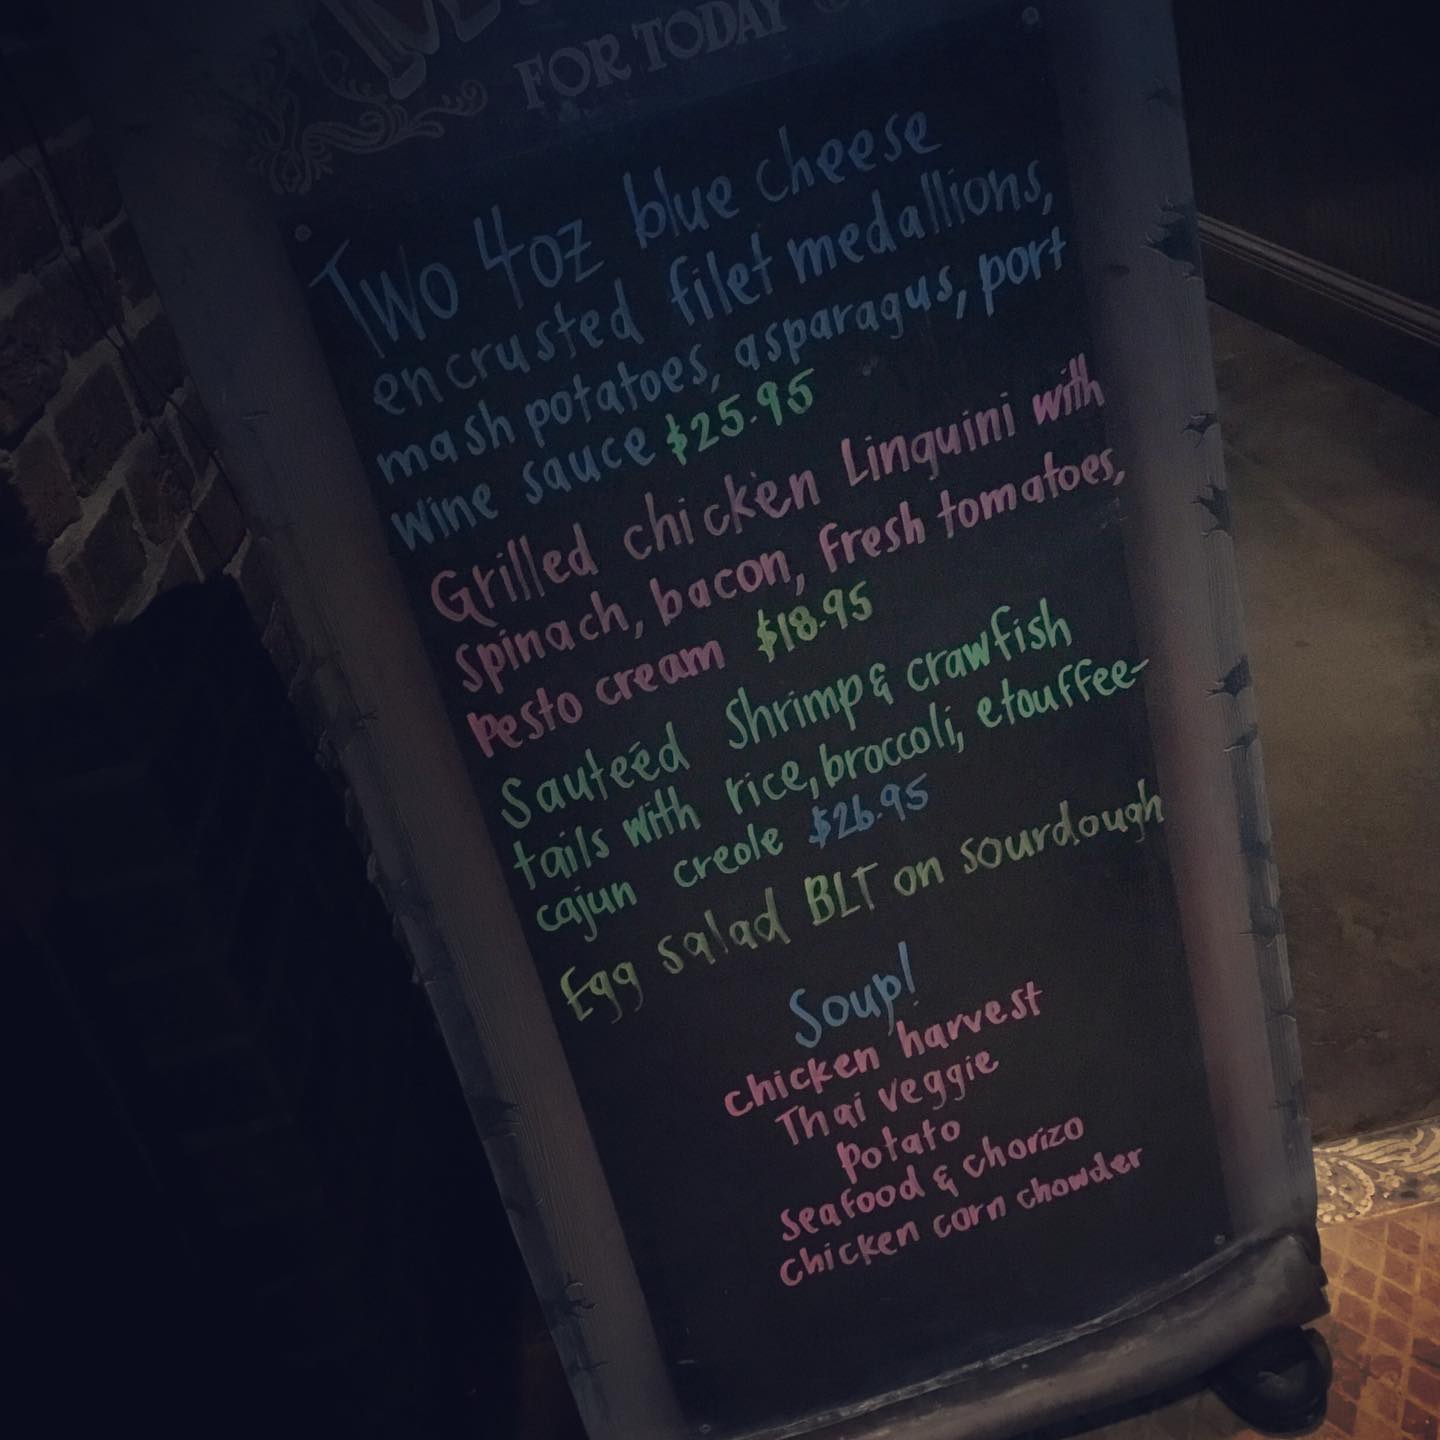 FOR TODAY
Two 4oz blue cheese
encrusted filet medallions,
mash potatoes, asparagus, port
wine sauce $25.95
Grilled chicken Linguini with
spinach, bacon, fresh tomatoes,
pesto cream $18.95
Sauteéd Shrimp & crawfish
tails with rice, broccoli, etouffee-
cajun creole $26.95
Egg salad BLT on sourdough
Soup!
chicken harvest
Thai veggie
potato
seafood & chorizo
chicken corn chowder